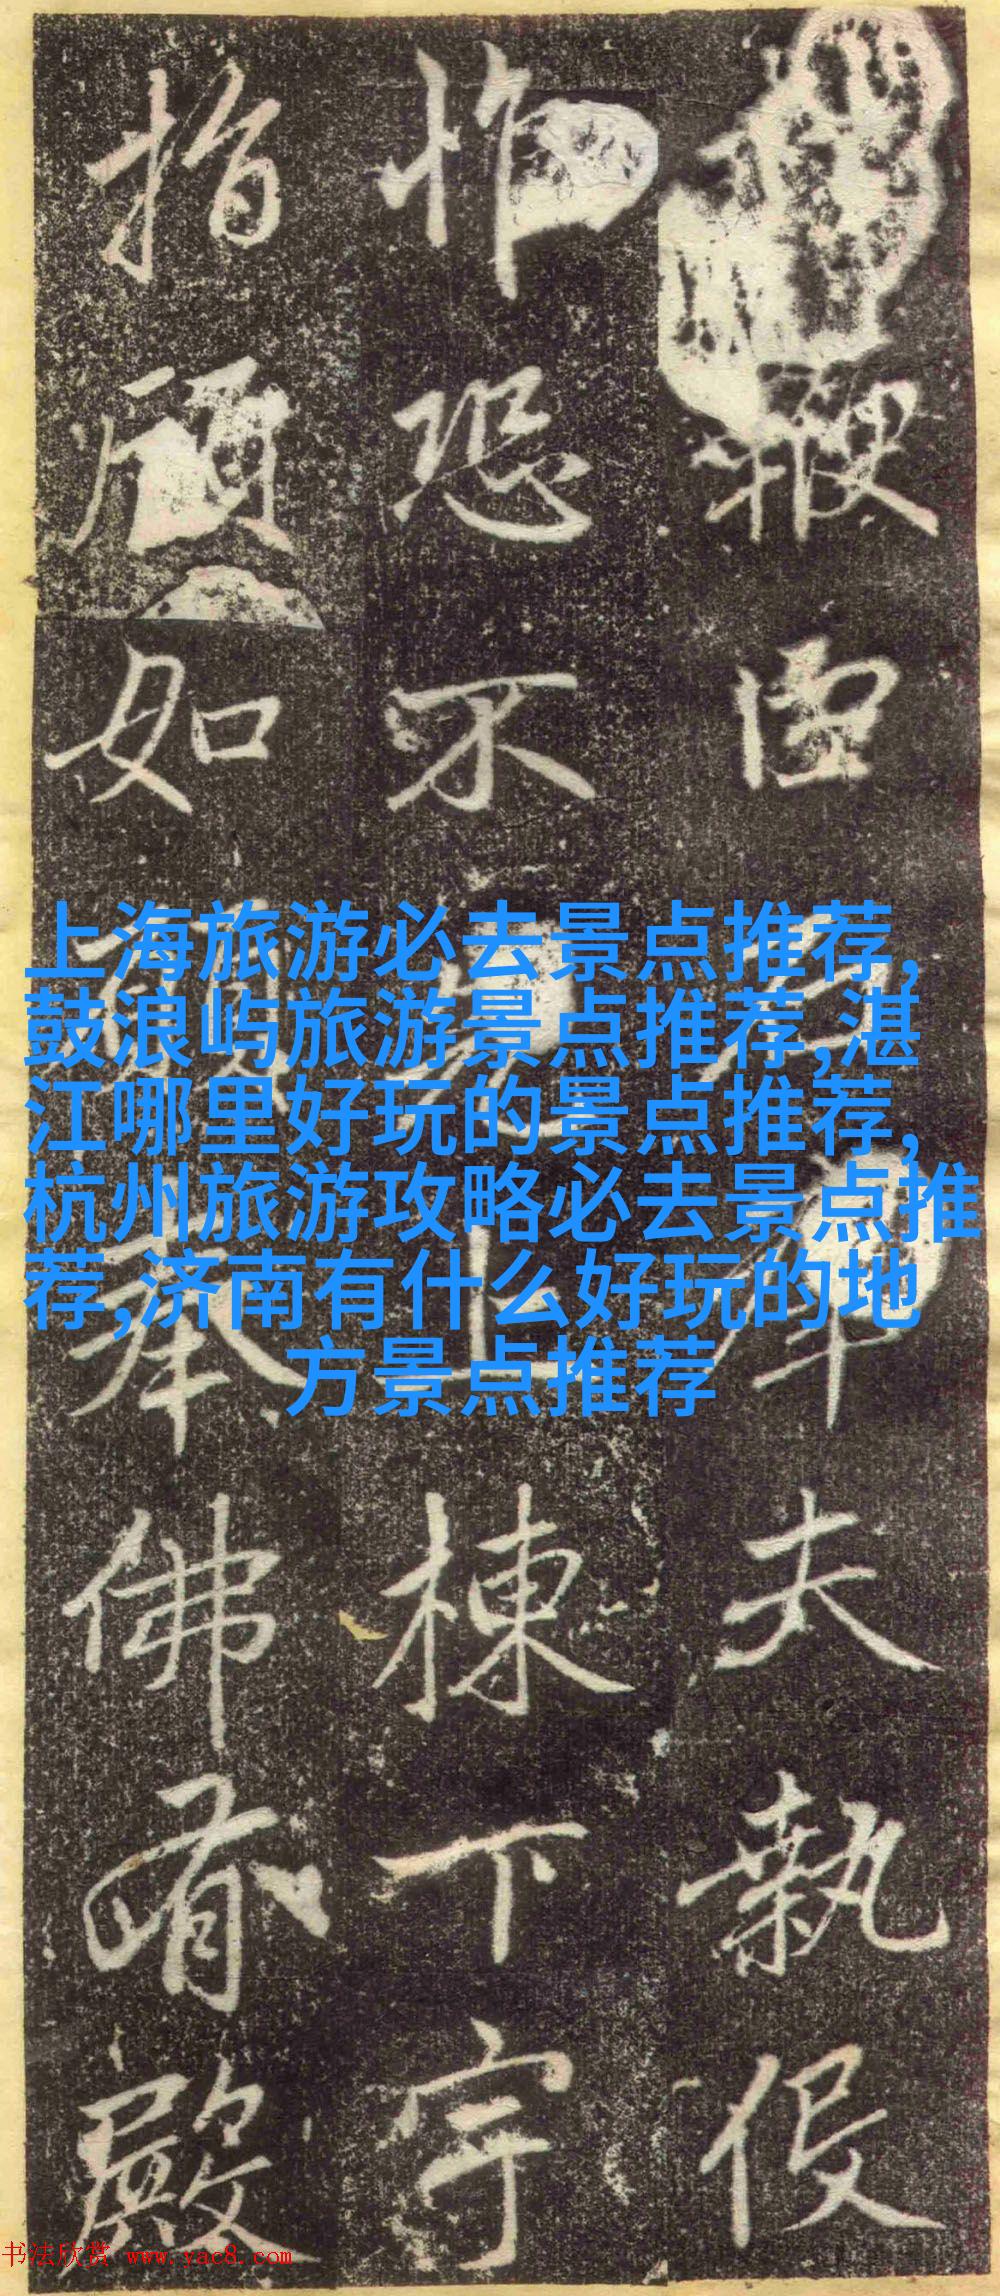 鞭
虚
夫
執
役
怍
恐
不
上
棟
下
宇
指
顧
如
奉
佛
前
殿
上海旅游必去景点推荐,
鼓浪屿旅游景点推荐,湛
江哪里好玩的景点推荐,
杭州旅游攻略必去景点推
荐,济南有什么好玩的地
方景点推荐
书法欣赏 www.yac8.com